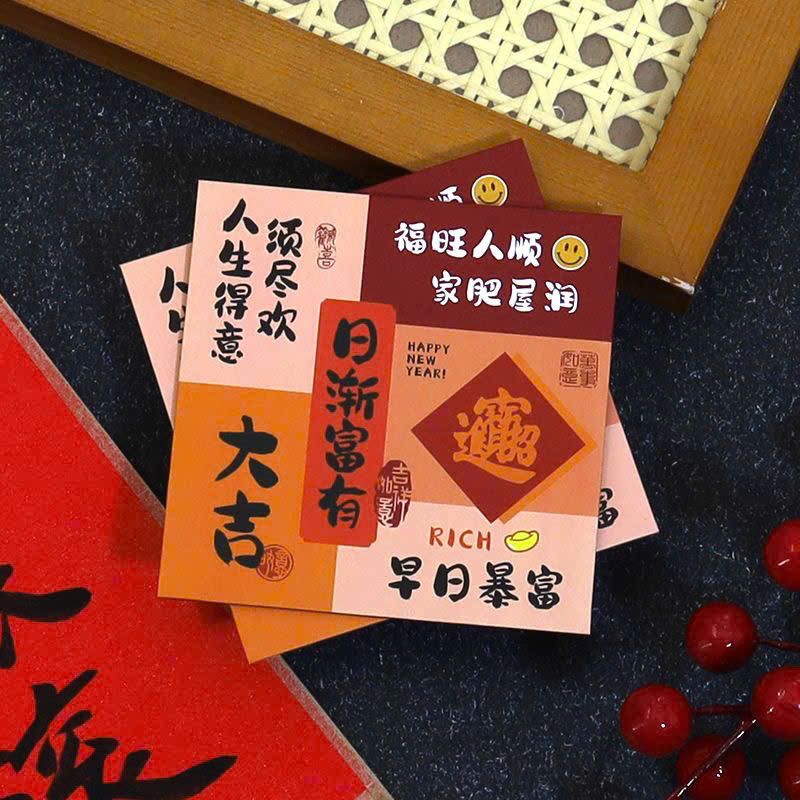 人生得意
须尽欢
福旺人顺
家肥屋润
日渐富有
HAPPY
NEW
YEAR!
招财进宝
大吉
吉祥
如意
RICH
早日暴富
顺
富